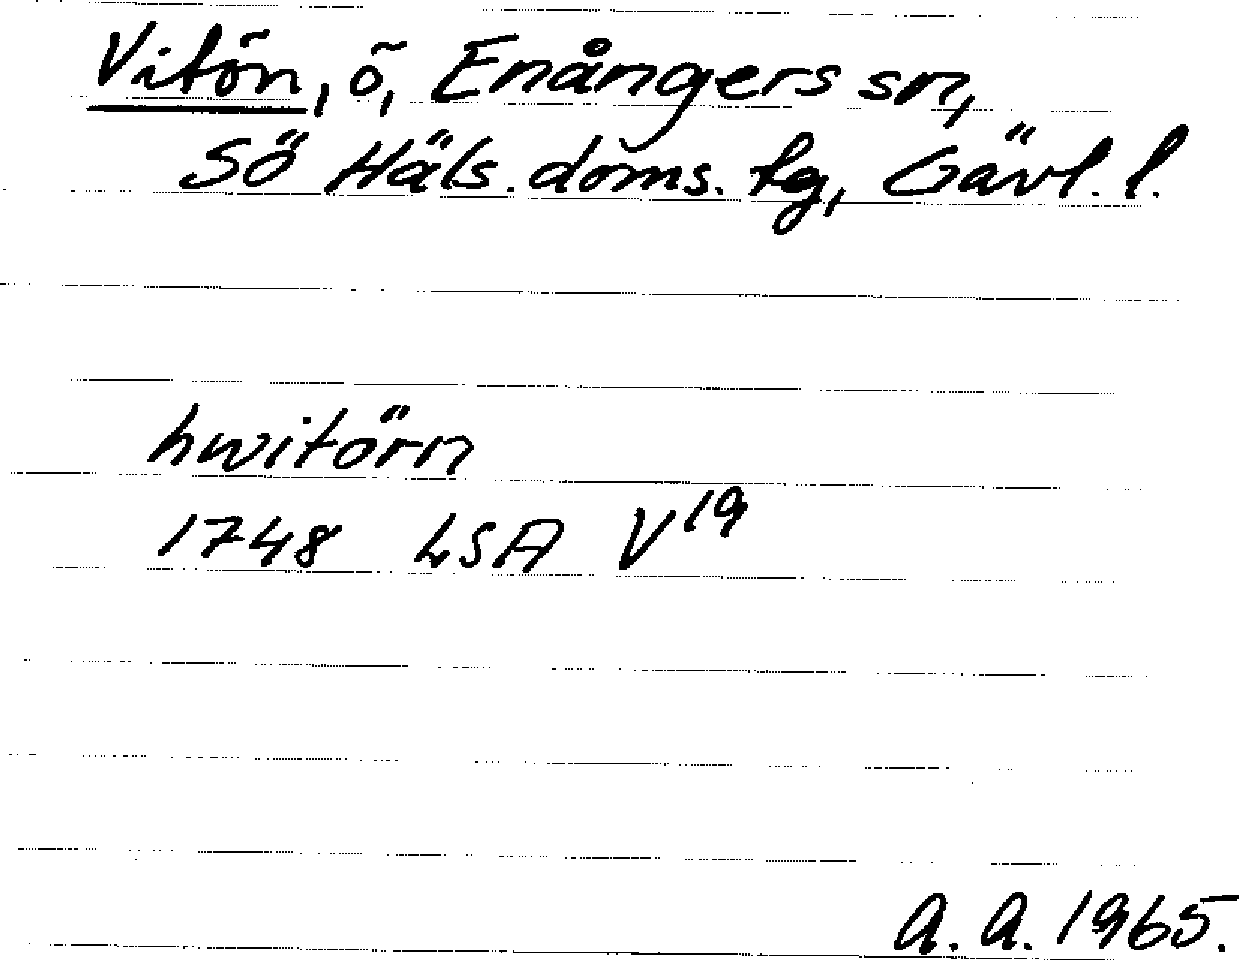 Vitön, ö, Enångers sn,
Sö Häls. doms. tg, Gävl. l.
hwitörn
1748 LSA V19
A. A. 1965.